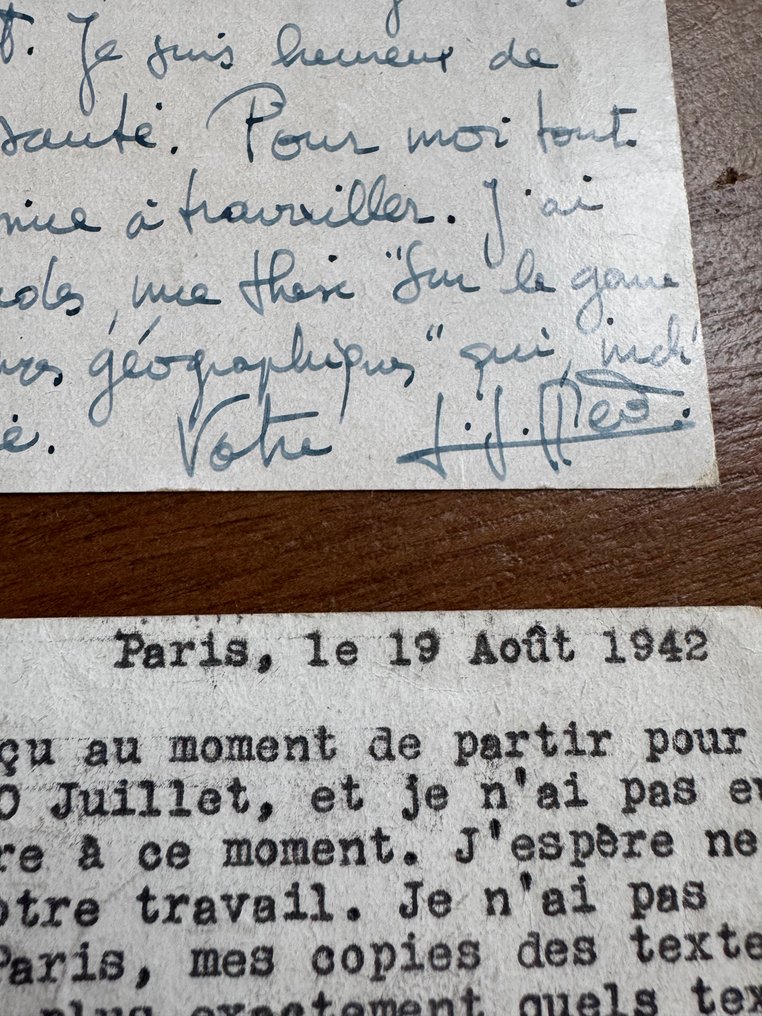 t. Je suis heureux de
santé. Pour moi tout
à travailler. J'ai
une these "Sur le
géographiques" qui, indi
Votre
Paris, le 19 Août 1942
çu au moment de partir pour
0 Juillet, et je n'ai pas eu
re à ce moment. J'espère ne
otre travail. Je n'ai pas
Paris, mes copies des texte
plus exactement quels tex